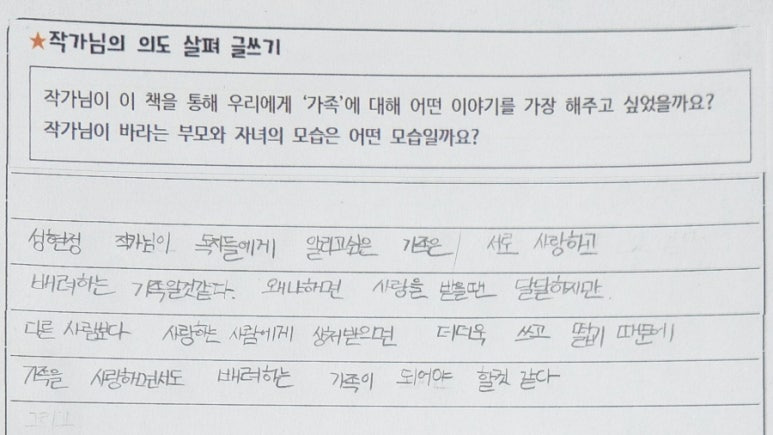 ★작가님의 의도 살펴 글쓰기
작가님이 이 책을 통해 우리에게 ‘가족’에 대해 어떤 이야기를 가장 해주고 싶었을까요?
작가님이 바라는 부모와 자녀의 모습은 어떤 모습일까요?
성현정 작가님이 독자들에게 알리고싶은 가족은 서로 사랑하고
배려하는 가족일것같다. 왜냐하면 사랑을 받을땐 달달하지만
다른 사람보다 사랑하는 사람에게 상처받으면 더더욱 쓰고 떫기 때문에
가족을 사랑하면서도 배려하는 가족이 되어야 할것 같다
그리고